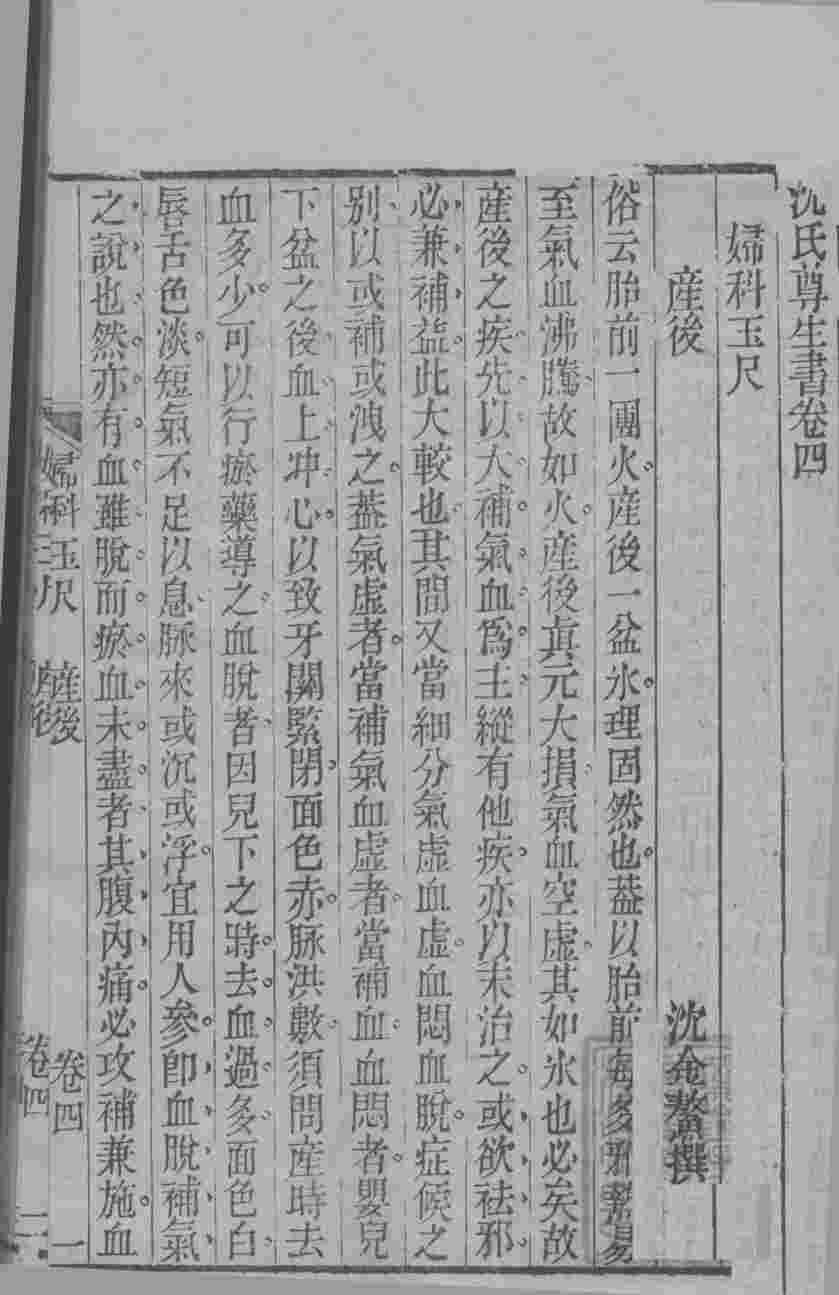 沈氏尊生書卷四
婦科玉尺
産後
沈金鰲撰
俗云胎前一團火。産後一盆氷。理固然也。葢以胎前每多邪熱易
至氣血沸騰、故如火。産後眞元大損、氣血空虛。其如氷也必矣故
産後之疾、先以大補氣血爲主、縱有他疾、亦以末治之。或欲祛邪。
必兼補益。此大較也。其間又當細分氣虛血虛。血悶血脫。症候之
別、以或補或洩之。葢氣虛者。當補氣血虛者。當補血。血悶者。嬰兒
下盆之後、血上冲心。以致牙關緊閉。面色赤。脉洪數、須問産時去
血多少。可以行瘀藥導之。血脫者、因兒下之時。去血過多。面色白
唇舌色淡。短氣不足以息、脉來或沉或浮。宜用人參。卽血脫補氣
之說也。然亦有血雖脫而瘀血未盡者其腹內痛。必攻補兼施。血
婦科玉尺　産後
卷四
一